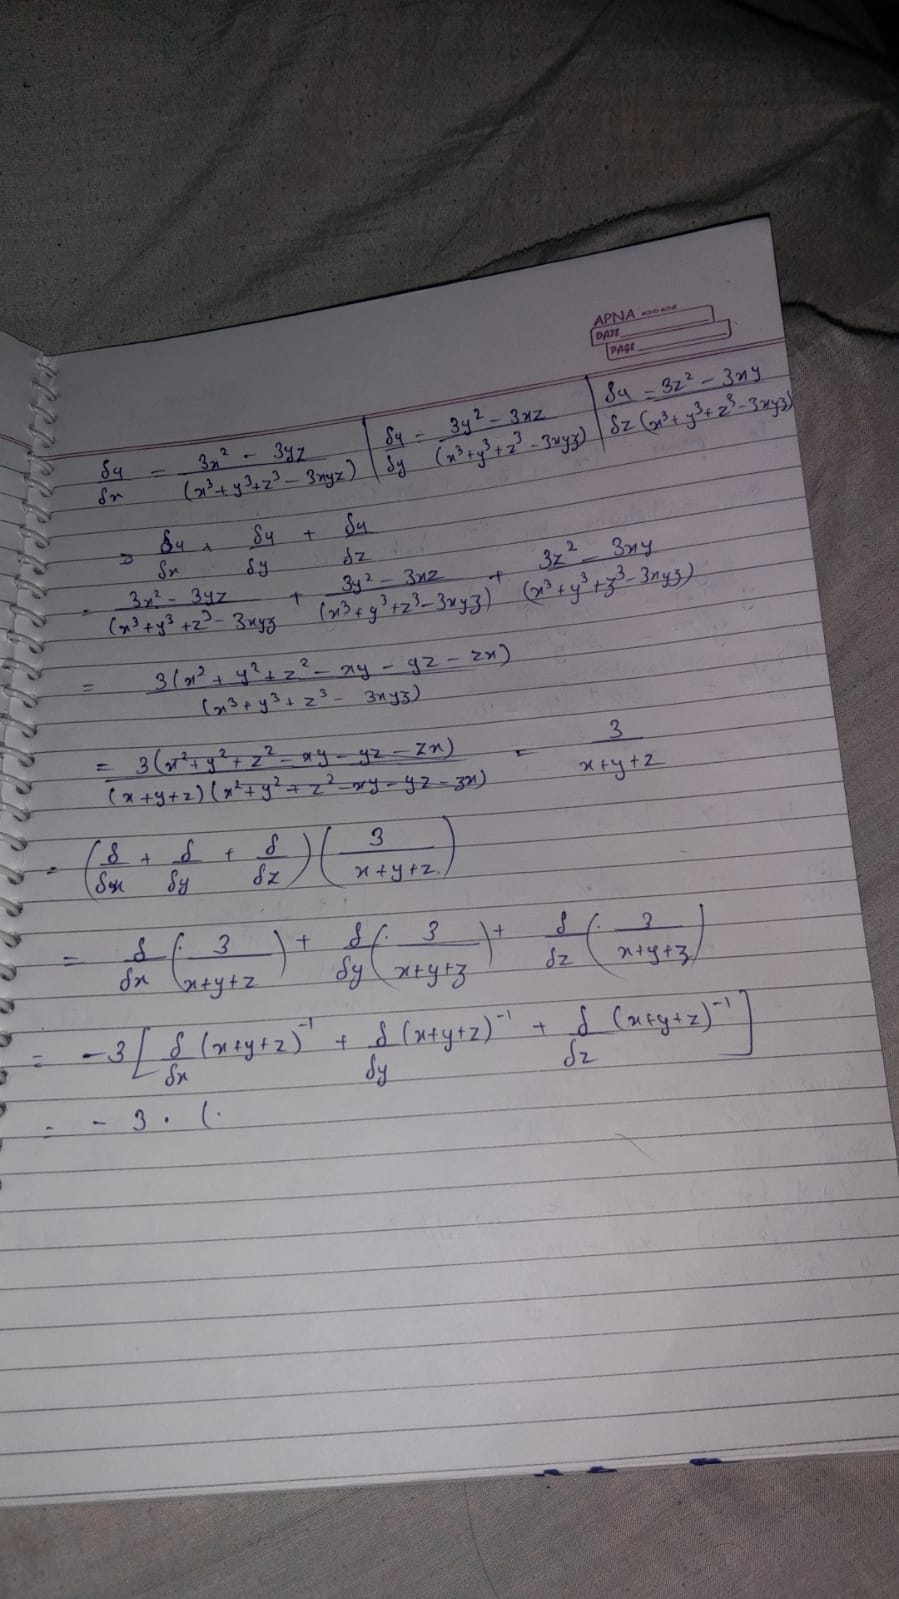 APNA
DATE
PAGE
δu/δx = 3x² - 3yz / (x³+y³+z³ - 3xyz) | δu/δy = 3y² - 3xz / (x³+y³+z³ - 3xyz) | δu/δz = 3z² - 3xy / (x³+y³+z³ - 3xyz)
⇒ δu/δx + δu/δy + δu/δz
= 3x² - 3yz / (x³+y³+z³ - 3xyz + 3y² - 3xz / (x³+y³+z³ - 3xyz) + 3z² - 3xy / (x³+y³+z³ - 3xyz)
= 3(x² + y² + z² - xy - yz - zx) / (x³+y³+z³ - 3xyz)
= 3(x²+y²+z² - xy - yz - zx) / (x+y+z)(x²+y²+z² - xy - yz - zx) = 3 / x+y+z
= (δ/δx + δ/δy + δ/δz) (3 / x+y+z)
= δ/δx (3 / x+y+z) + δ/δy (3 / x+y+z) + δ/δz (3 / x+y+z)
= -3 [δ/δx (x+y+z)⁻¹ + δ/δy (x+y+z)⁻¹ + δ/δz (x+y+z)⁻¹]
= - 3 . (